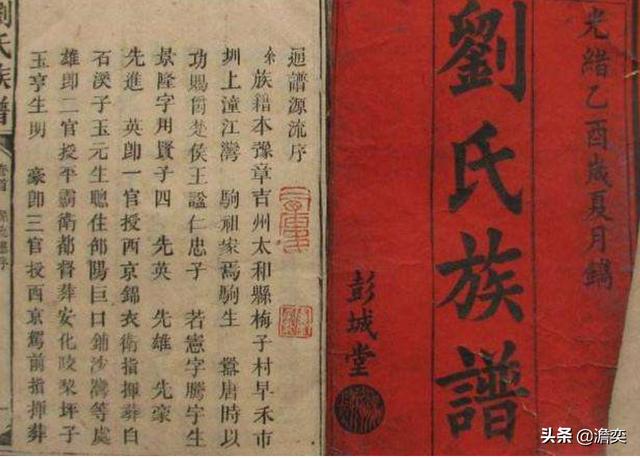 光緒乙酉歲夏月鐫
劉氏族譜
彭城堂
通譜源流序
余族籍本豫章吉州太和縣梅子村早禾市
圳上潼江灣　駒祖家焉駒生　暠唐時以
功賜爵楚侯王諡仁忠子　若憲字騰宇生
景隆字用賢子四　先英　先雄　先豪
先進　英卽一官授西京錦衣衛指揮葬白
石溪子玉元生聰住邵陽巨口鋪沙灣等處
雄卽二官授平霸衛都督葬安化陵梨坪子
玉亨生明　豪卽三官授西京駕前指揮葬
劉氏族譜
卷首
头条 @澹奕